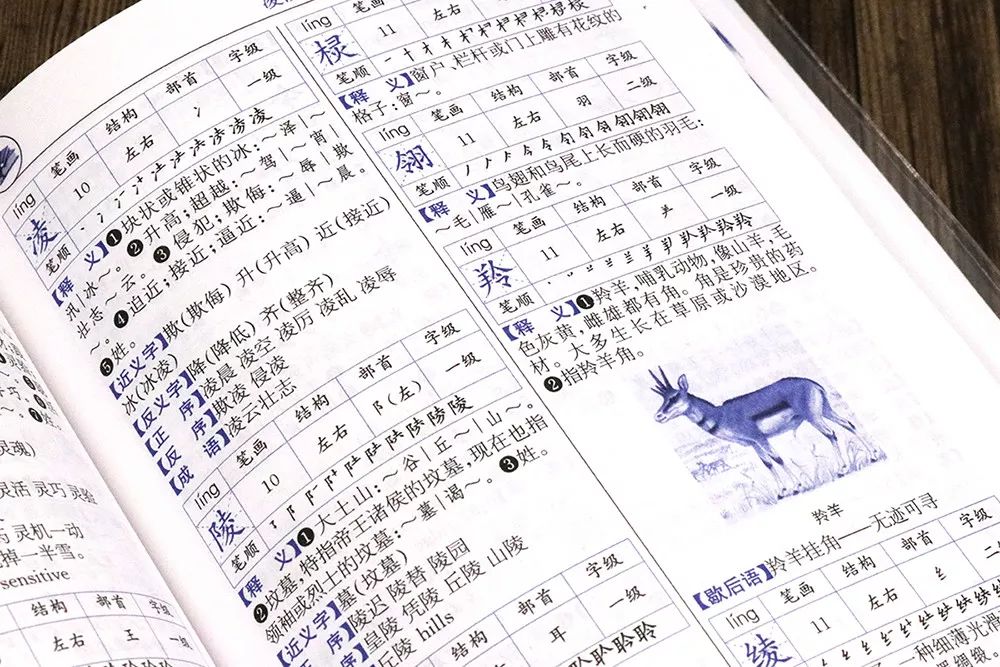 灵魂)
灵活 灵巧 灵验
灵机一动
掉一半雪。
sensitive
结构 部首 字级
左右 王 一级
líng 笔画 结构 部首 字级
凌 10 左右 冫 一级
笔顺
【释 义】❶块状或锥状的冰:~泽|~
汛|冰~。❷升高;超越:~驾|~霄|
壮志~云。❸侵犯;欺侮:~辱|欺
~。❹迫近;接近;逼近:~逼|~晨。
❺姓。
【近义字】欺(欺侮) 升(升高) 近(接近)
冰(冰凌)
【反义字】降(降低) 齐(整齐)
【正 序】凌晨 凌空 凌厉 凌乱 凌辱
【反 序】欺凌 侵凌
【成 语】凌云壮志
líng 笔画 结构 部首 字级
陵 10 左右 阝(左) 一级
笔顺
【释 义】❶大土山:~谷|丘~|山~。
❷坟墓,特指帝王诸侯的坟墓,现在也指
领袖或烈士的坟墓:~墓|谒~。❸姓。
【近义字】墓(坟墓)
陵迟 陵替 陵园
皇陵 凭陵 丘陵 山陵
丘陵 hills
结构 部首 字级
耳 一级
líng 笔画 结构 部首 字级
棂 11 左右
笔顺
【释 义】窗户、栏杆或门上雕有花纹的
格子:窗~。
líng 笔画 结构 部首 字级
翎 11 左右 羽 二级
笔顺
【释 义】鸟翅和鸟尾上长而硬的羽毛:
~毛|雁~|孔雀~。
líng 笔画 结构 部首 字级
羚 11 左右 一级
笔顺
【释 义】❶羚羊,哺乳动物,像山羊,毛
色灰黄,雌雄都有角。角是珍贵的药
材。大多生长在草原或沙漠地区。
❷指羚羊角。
羚羊
【歇后语】羚羊挂角——无迹可寻
líng 笔画 结构 部首 字级
绫 11 左右 纟
一种细薄光滑